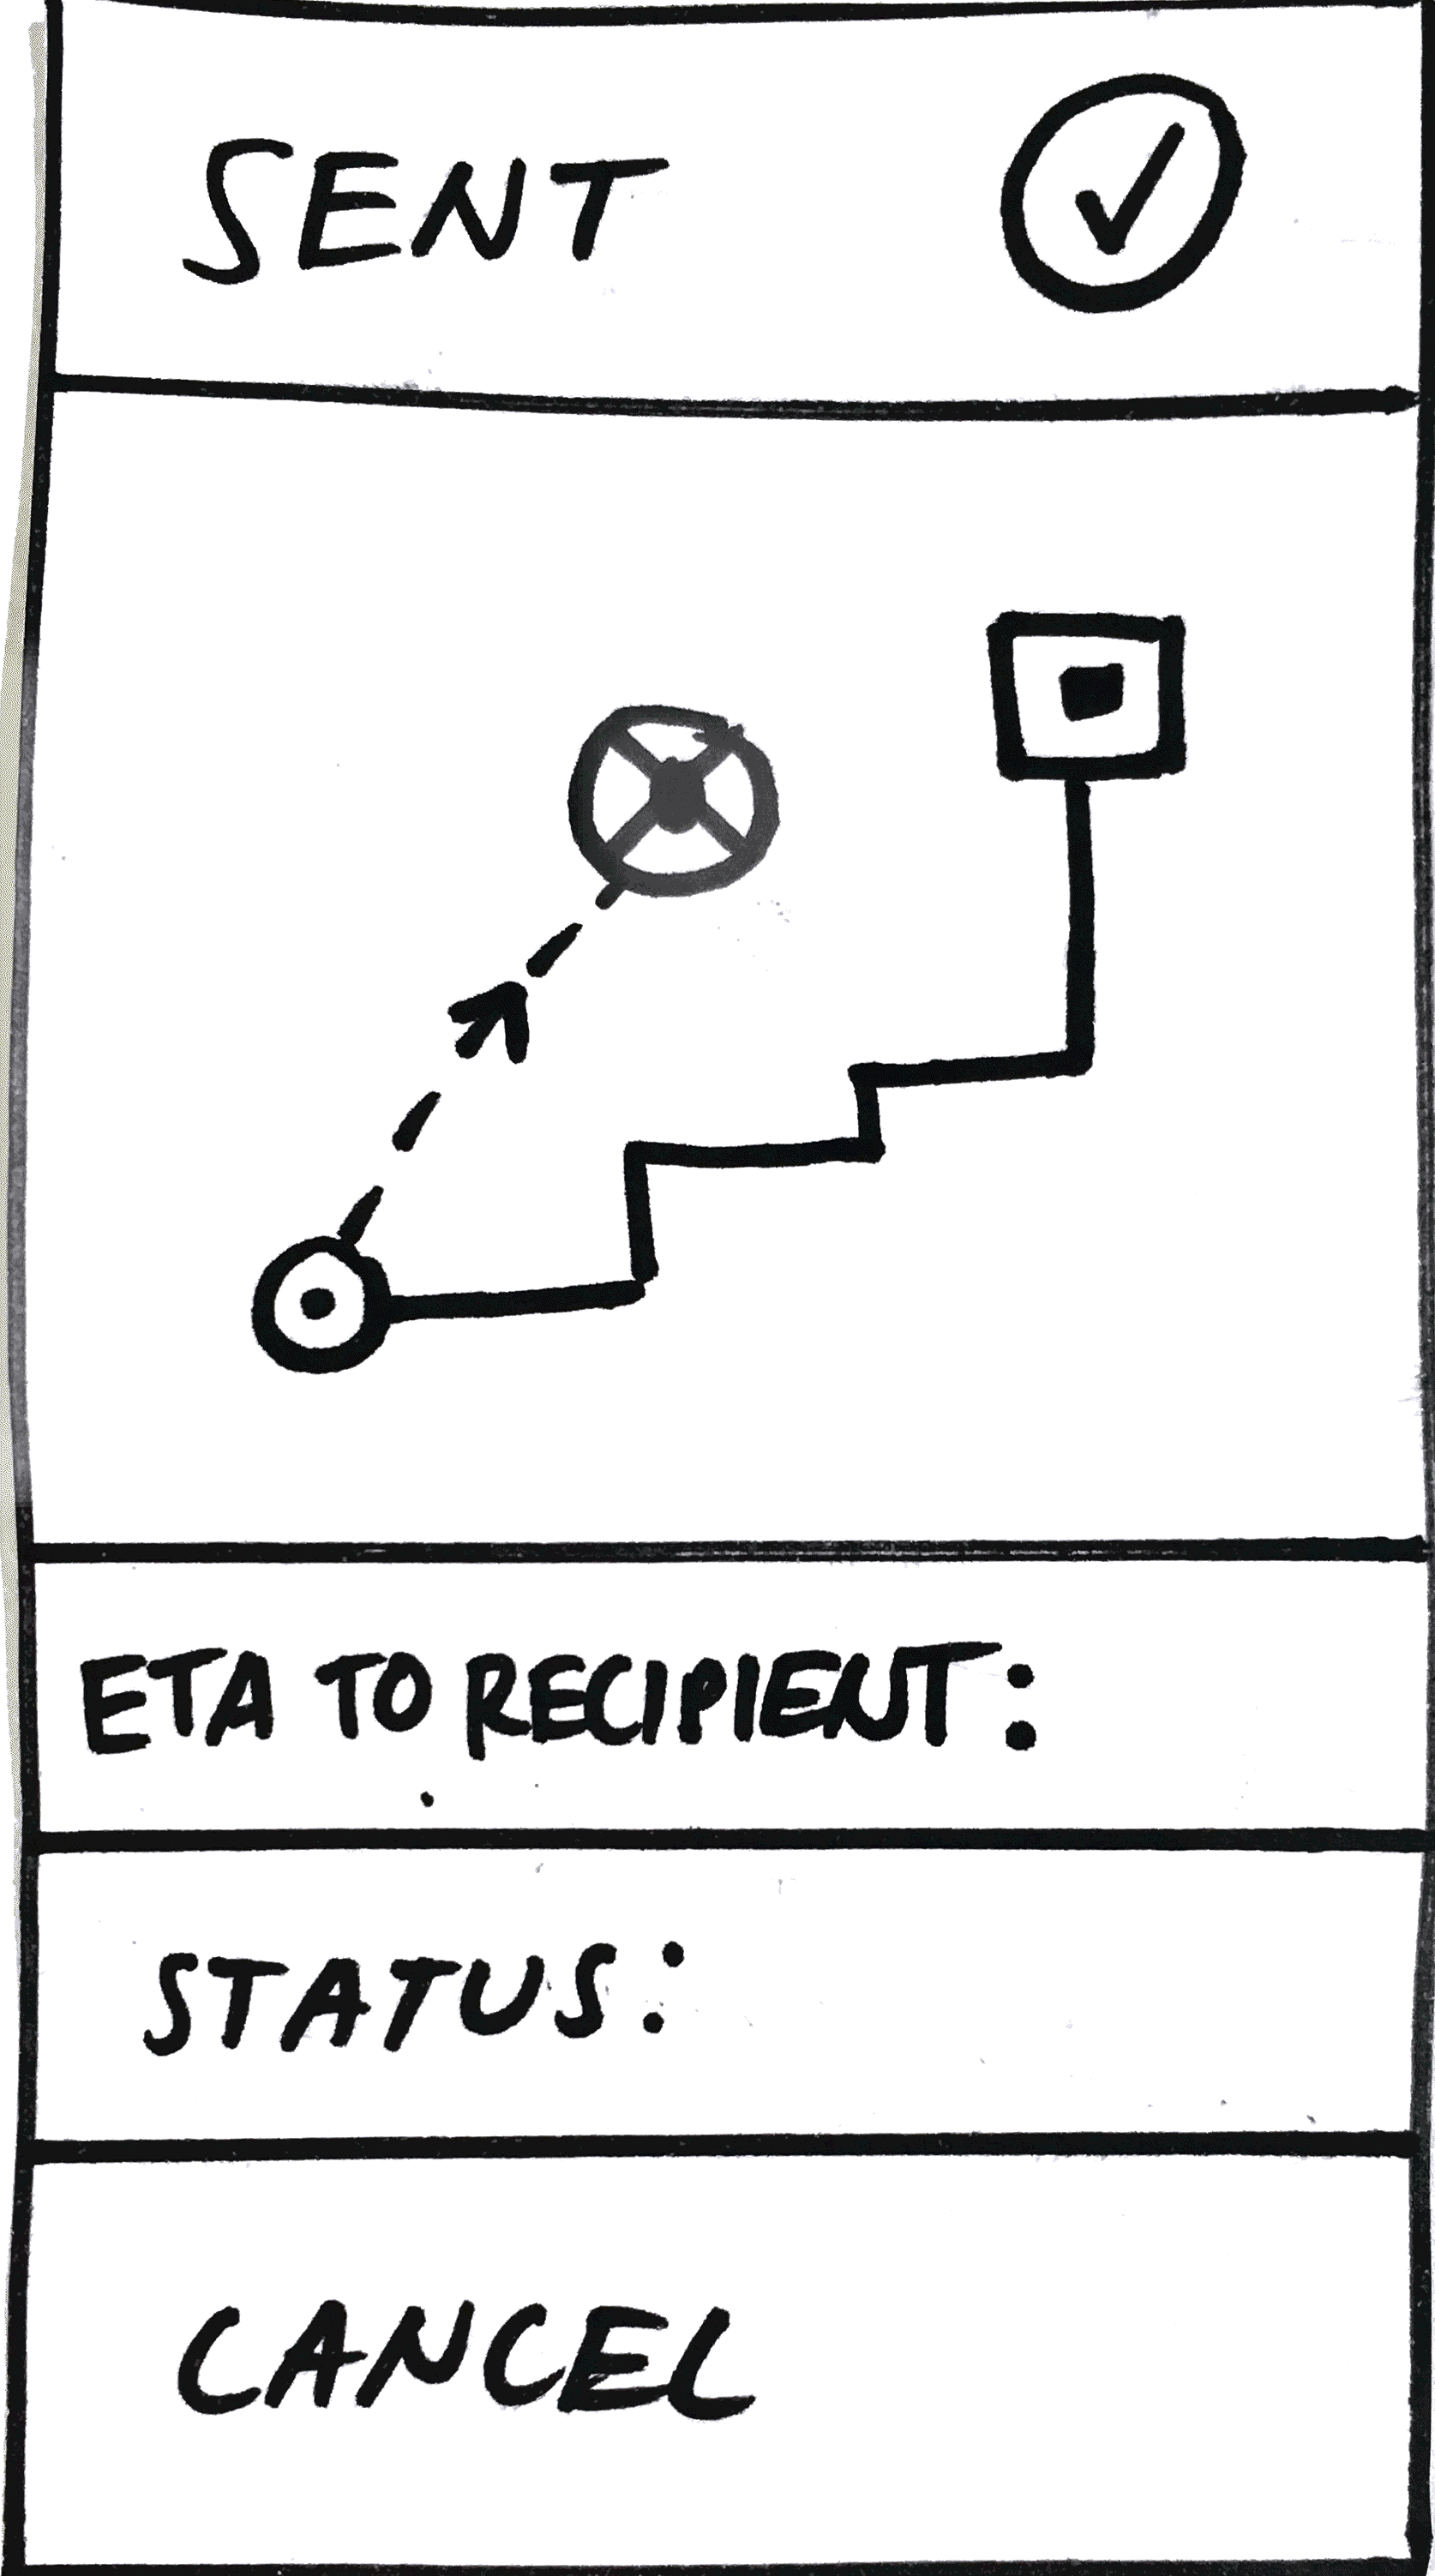 SENT
ETA TO RECIPIENT:
STATUS:
CANCEL